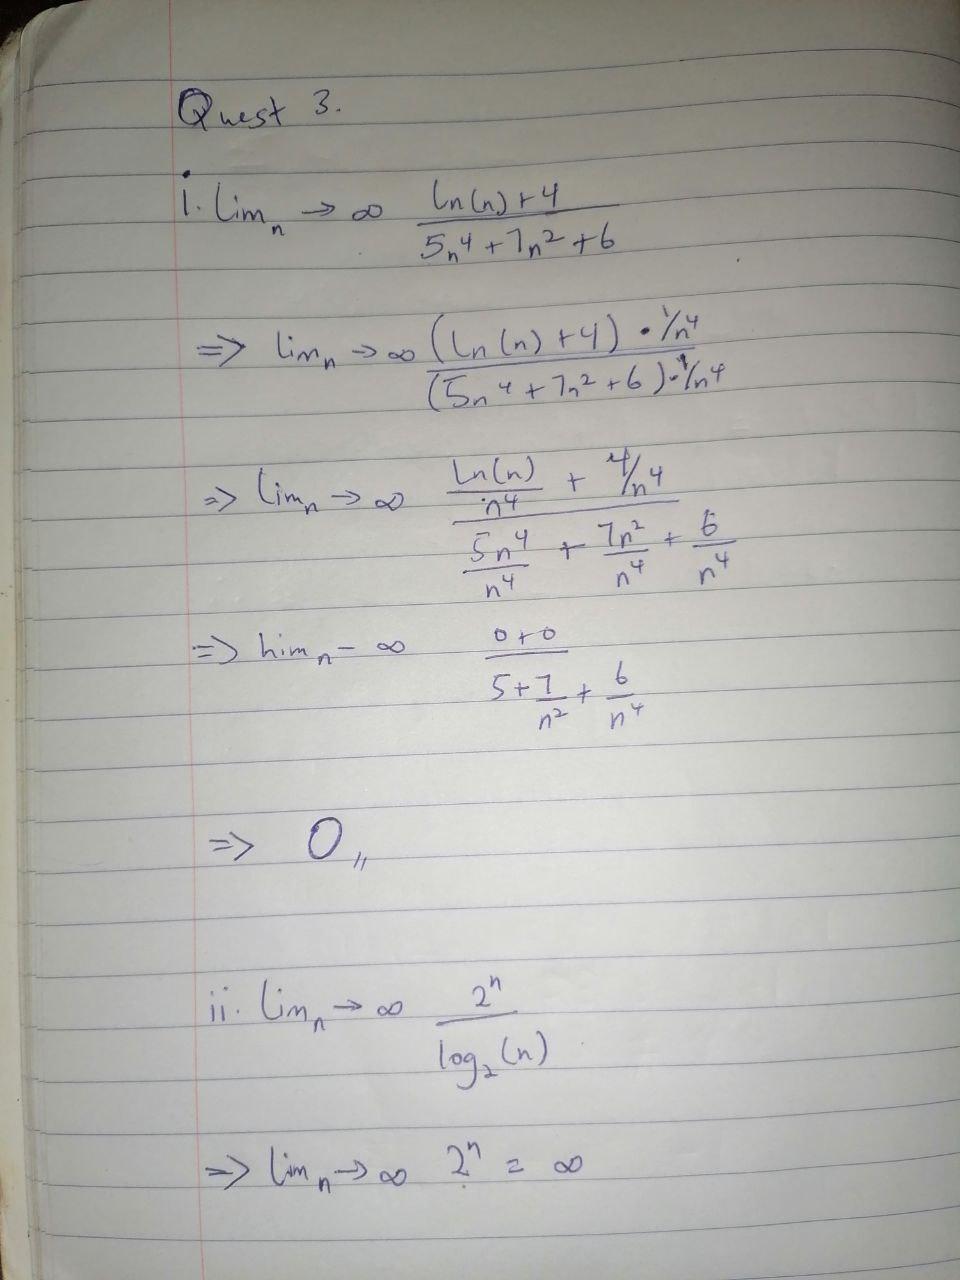 Quest 3.
i. Lim n → ∞ (Ln(n) + 4) / (5n⁴ + 7n² + 6)
=> Lim n → ∞ ((Ln(n) + 4) • 1/n⁴) / ((5n⁴ + 7n² + 6) • 1/n⁴)
=> Lim n → ∞ (Ln(n)/n⁴ + 4/n⁴) / (5n⁴/n⁴ + 7n²/n⁴ + 6/n⁴)
=> Lim n - ∞ (0+0) / (5 + 7/n² + 6/n⁴)
=> 0,,
ii. Lim n → ∞ 2ⁿ / log₂(n)
=> Lim n → ∞ 2ⁿ = ∞